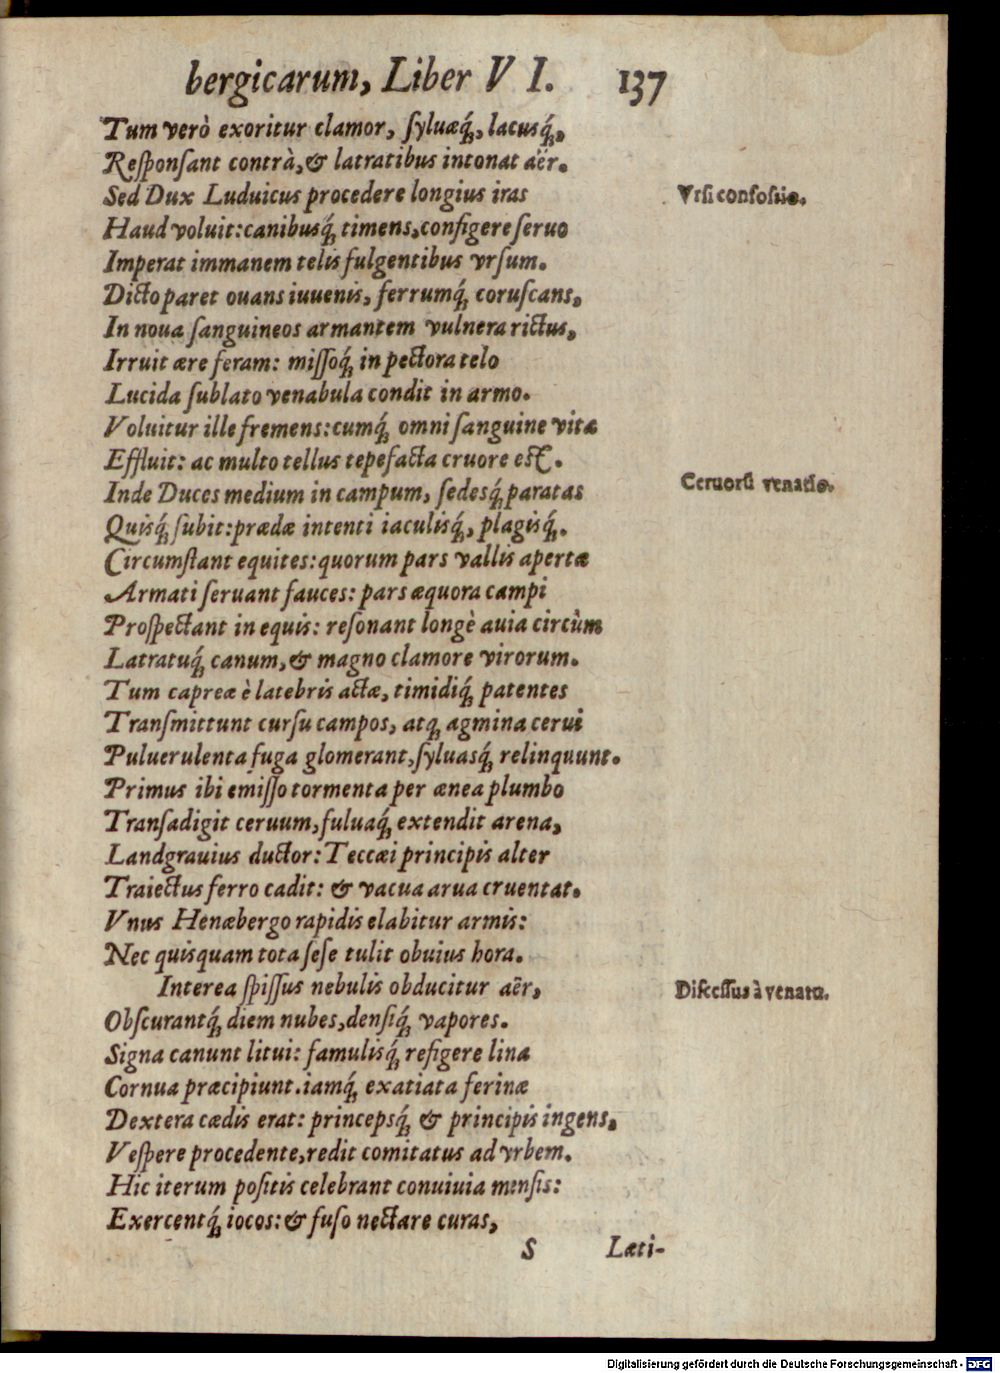 bergicarum, Liber V I. 137
Tum verò exoritur clamor, ſyluæq́;, lacusq́;,
Reſponſant contrà, & latratibus intonat aër.
Sed Dux Luduicus procedere longius iras
Vrſi confoſsio.
Haud voluit: canibusq́; timens, configere ſeruo
Imperat immanem telis fulgentibus vrſum.
Dicto paret ouans iuuenis, ferrumq́; coruſcans,
In noua ſanguineos armantem vulnera rictus,
Irruit ære feram: miſſoq́; in pectora telo
Lucida ſublato venabula condit in armo.
Voluitur ille fremens: cumq́; omni ſanguine vita
Effluit: ac multo tellus tepefacta cruore eſt.
Inde Duces medium in campum, ſedesq́; paratas
Ceruorū venatio.
Quisq́; ſubit: prædæ intenti iaculisq́;, plagisq́;.
Circumſtant equites: quorum pars vallis apertæ
Armati ſeruant fauces: pars æquora campi
Proſpectant in equis: reſonant longè auia circùm
Latratuq́; canum, & magno clamore virorum.
Tum capreæ è latebris actæ, timidiq́; patentes
Tranſmittunt curſu campos, atq; agmina cerui
Puluerulenta fuga glomerant, ſyluasq́; relinquunt.
Primus ibi emiſſo tormenta per ænea plumbo
Tranſadigit ceruum, fuluaq́; extendit arena,
Landgrauius ductor: Teccæi principis alter
Traiectus ferro cadit: & vacua arua cruentat.
Vnus Henæbergo rapidis elabitur armis:
Nec quisquam tota ſeſe tulit obuius hora.
Interea ſpiſſus nebulis obducitur aër,
Diſceſſus à venatu.
Obſcurantq́; diem nubes, denſiq́; vapores.
Signa canunt litui: famulisq́; refigere lina
Cornua præcipiunt. iamq́; exatiata ferinæ
Dextera cædis erat: princepsq́; & principis ingens,
Veſpere procedente, redit comitatus ad vrbem.
Hic iterum poſitis celebrant conuiuia menſis:
Exercentq́; iocos: & fuſo nectare curas,
S Læti-
Digitalisierung gefördert durch die Deutsche Forschungsgemeinschaft - DFG